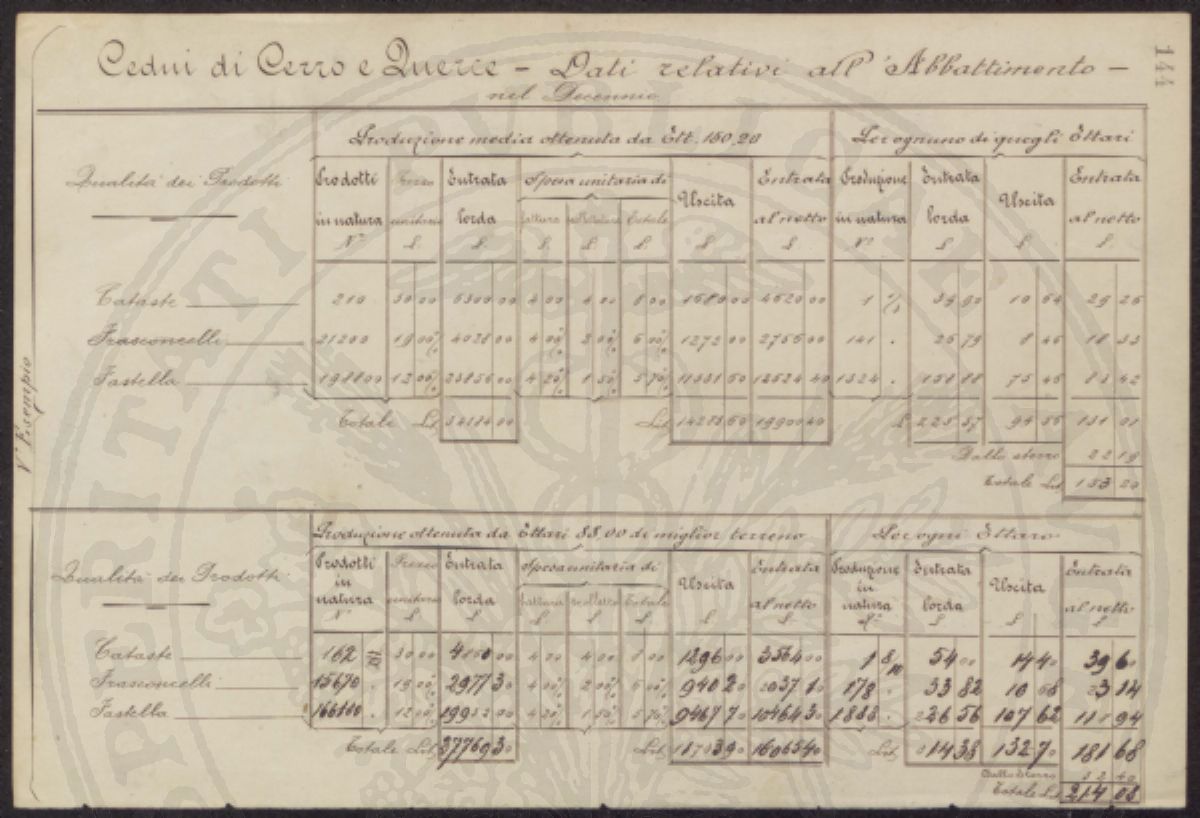 144
Cedui di Cerro e Querce - Dati relativi all'Abbattimento -
nel Decennio
Produzione media ottenuta da Ett. 150,20 Per ognuno di quegli Ettari
Qualità dei Prodotti Prodotti in natura N° Prezzo unitario £. Entrata lorda £. Spesa unitaria di fattura £. Totale £. Uscita £ Entrata al netto £. Produzione in natura N° Entrata lorda £ Uscita £ Entrata al netto £.
Cataste 210 30 00 6300 00 4 00 4 00 8 00 1680 00 4620 00 1 39 90 10 64 29 26
Frasconcelli 21200 19 00 % 4028 00 4 00 % 2 00 % 6 00 % 1272 00 2756 00 141 . 26 79 8 46 18 33
Fastella 198800 12 00 % 23856 00 4 20 % 1 50 % 5 70 % 11331 60 12524 40 1324 . 158 88 75 46 83 42
Totale Lit 34184 00 Lit 14283 60 19900 40 £ 225 57 94 56 131 01
Dallo sterzo 22 19
Totale Lit 153 20
V° Esempio
Produzione ottenuta da Ettari 88,00 di miglior terreno Per ogni Ettaro
Qualità dei Prodotti Prodotti in natura N° Prezzo unitario £ Entrata lorda £ Spesa unitaria di fattura £. Totale £. Uscita £ Entrata al netto £. Produzione in natura Entrata lorda £ Uscita £ Entrata al netto £
Cataste 162 30 00 4 00 4 00 8 00 1296 00 3564 00 1 8/10 54 00 14 40 39 60
Frasconcelli 15670 . 19 00 % 2977 30 4 00 % 2 00 % 6 00 % 940 20 2037 10 178 . 33 82 10 68 23 14
Fastella . 12 00 % 4 20 % 1 50 % 5 70 % 9467 70 10464 30 1888 . 226 56 107 62 118 94
Totale Lit 27769 30 Lit 11703 90 16065 40 Lit 14 38 132 70 181 68
Dallo sterzo 32 40
Totale Lit 214 08
PERITATI PUBLICAE